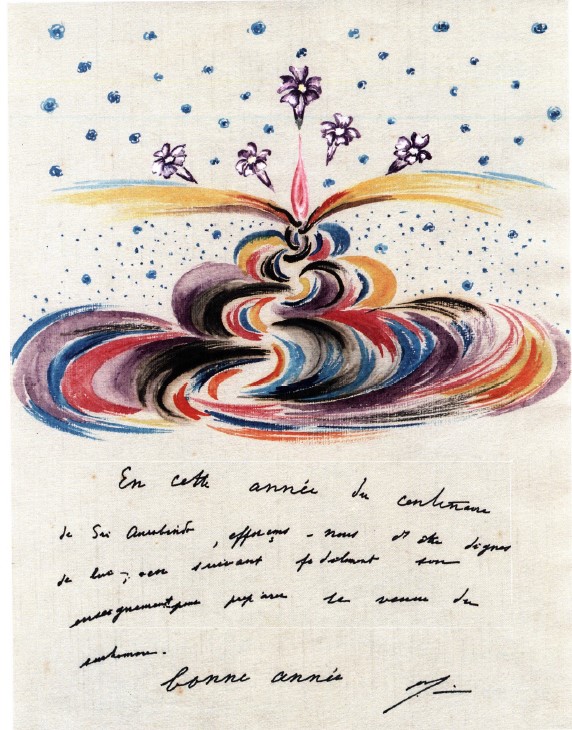 En cette année du centenaire
de Sri Aurobindo, efforçons-nous d'être dignes
de lui, en suivant fidèlement son
enseignement pour préparer la venue du
surhomme.
bonne année